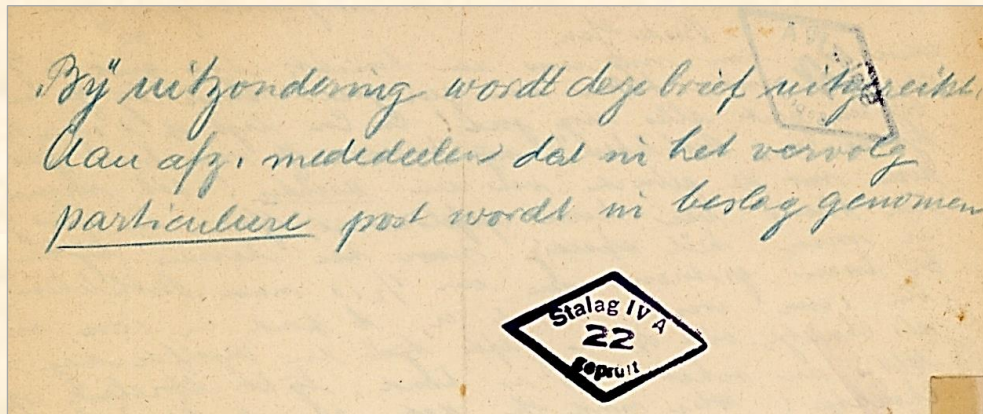 Bÿ uitzondering wordt deze brief uitgereikt.
Aan afz. mededeelen dat in het vervolg
particuliere post wordt in beslag genomen
Stalag IV A
22
geprüft